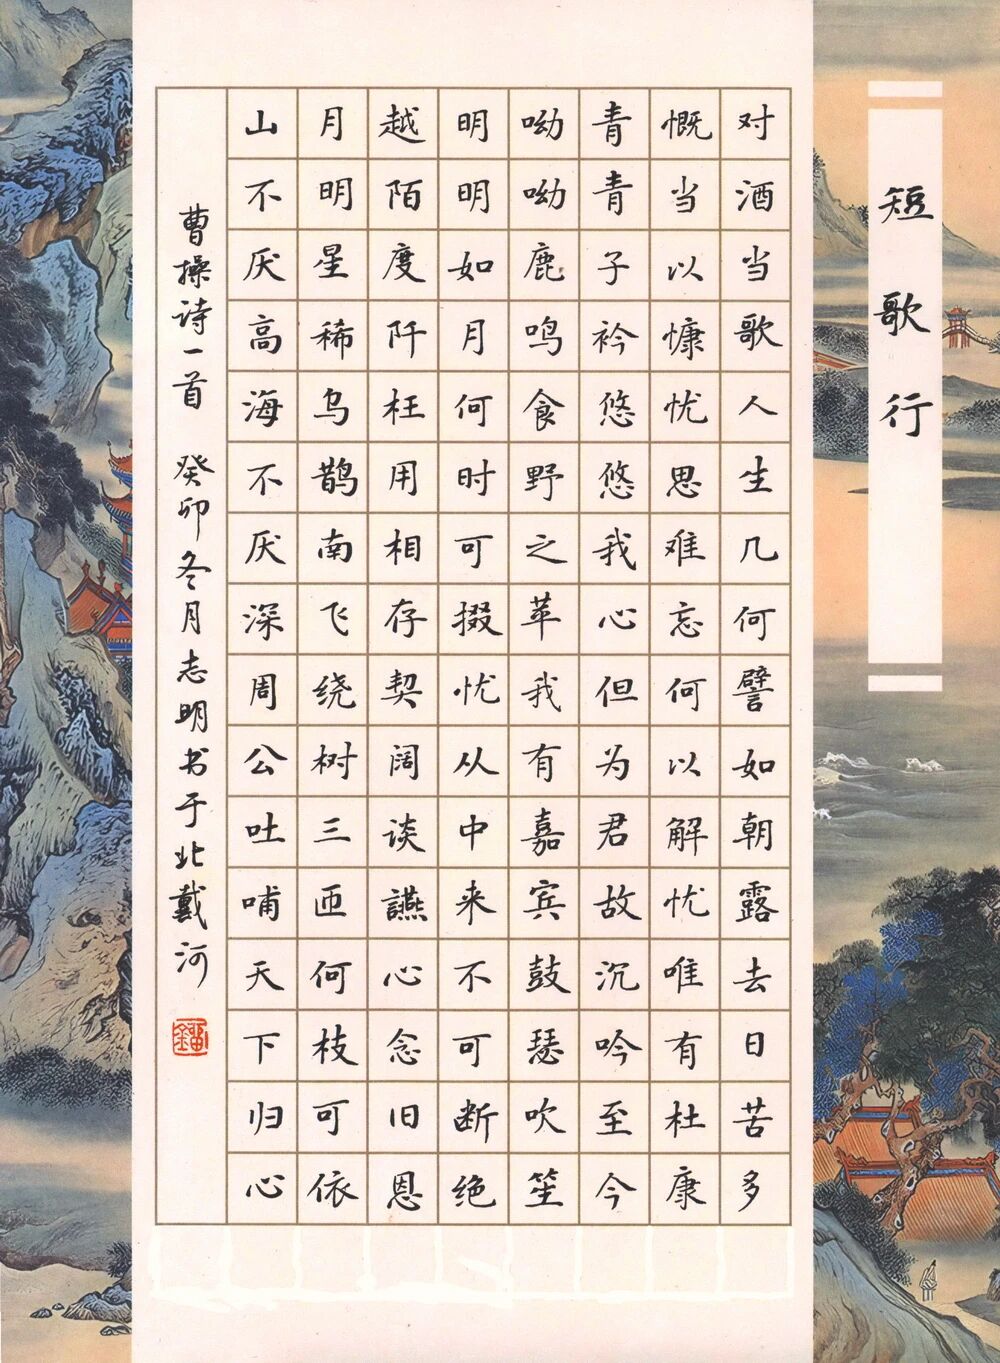 短歌行
对酒当歌人生几何譬如朝露去日苦多
慨当以慷忧思难忘何以解忧唯有杜康
青青子衿悠悠我心但为君故沉吟至今
呦呦鹿鸣食野之苹我有嘉宾鼓瑟吹笙
明明如月何时可掇忧从中来不可断绝
越陌度阡枉用相存契阔谈讌心念旧恩
月明星稀乌鹊南飞绕树三匝何枝可依
山不厌高海不厌深周公吐哺天下归心
曹操诗一首 癸卯冬月志明书于北戴河